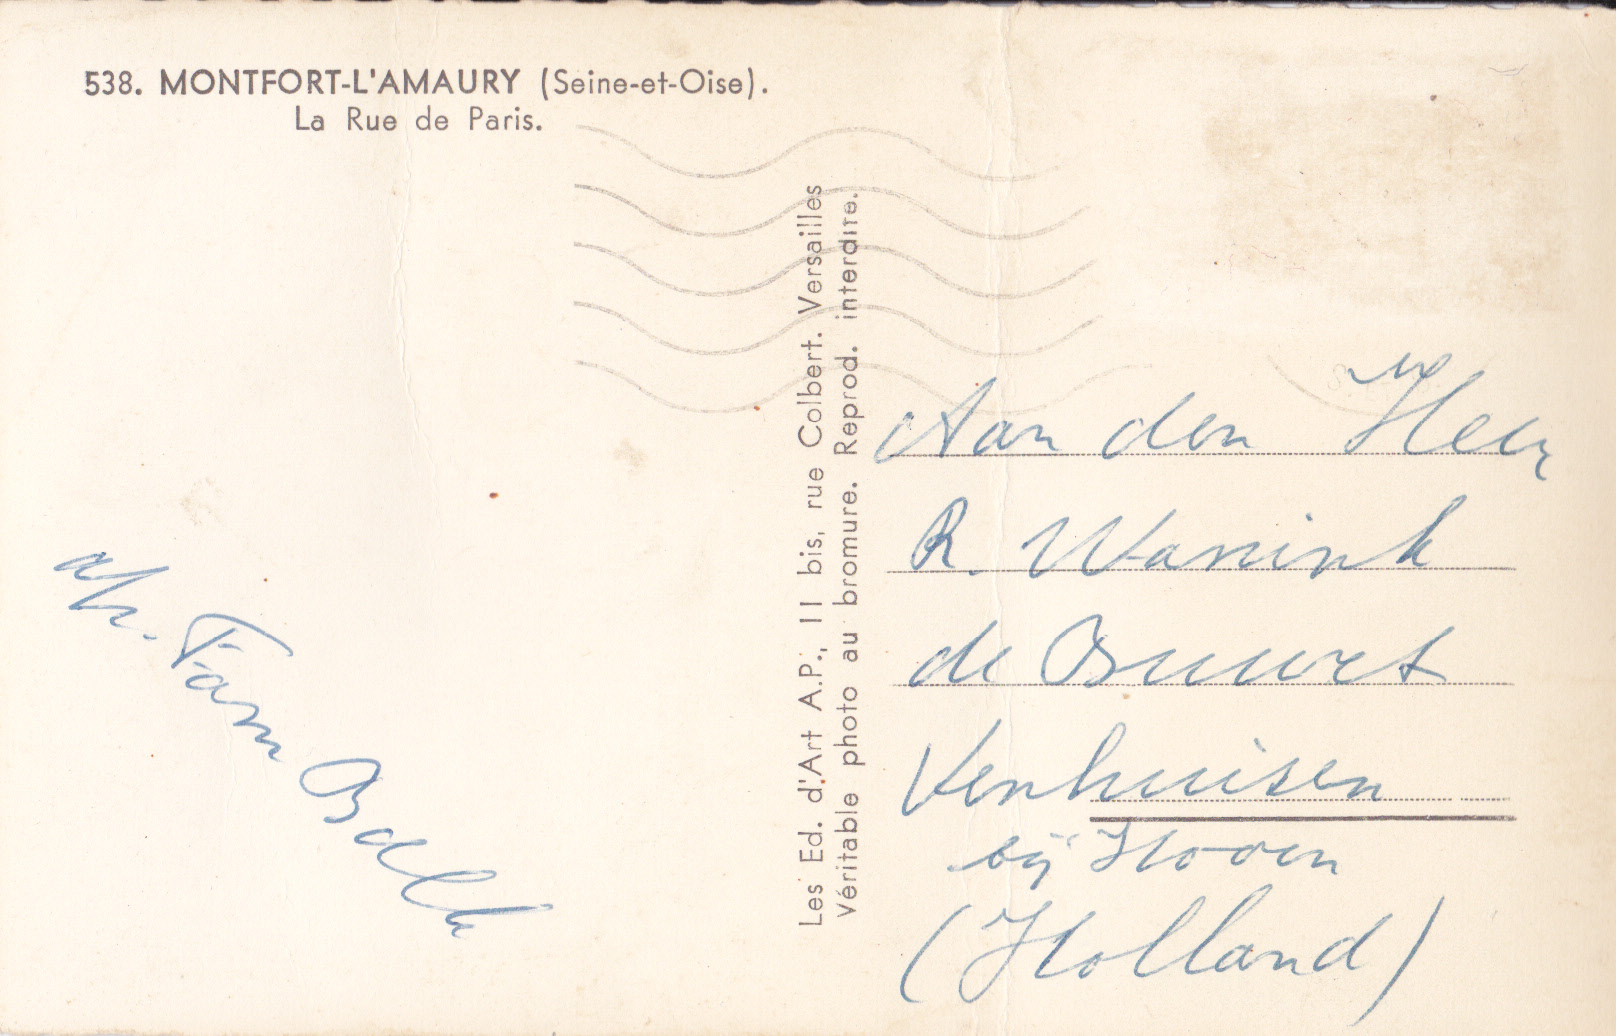 538. MONTFORT-L'AMAURY (Seine-et-Oise).
La Rue de Paris.
Les Ed. d'Art A.P., 11 bis, rue Colbert. Versailles
Véritable photo au bromure. Reprod. interdite.
Aan den Heer
R. Wanink
de Buurt
Venhuisen
bij Hoorn
(Holland)
afz. Fam